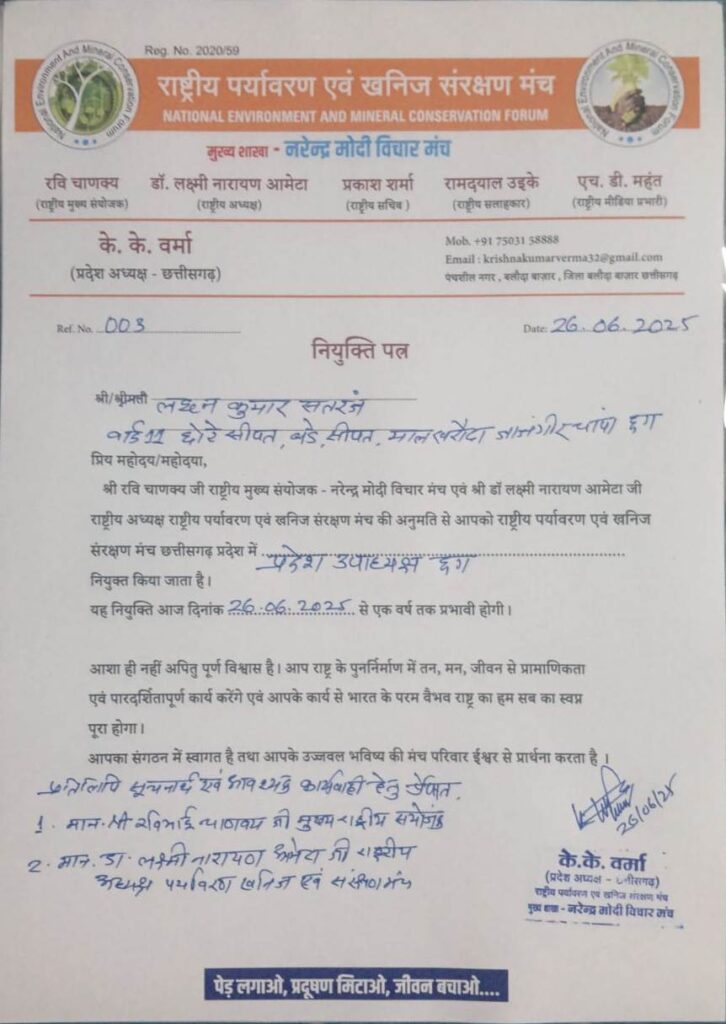 Reg. No. 2020/59
National Environment And Mineral Conservation Forum
राष्ट्रीय पर्यावरण एवं खनिज संरक्षण मंच
NATIONAL ENVIRONMENT AND MINERAL CONSERVATION FORUM
National Environment And Mineral Conservation Forum
मुख्य शाखा - नरेन्द्र मोदी विचार मंच
रवि चाणक्य डॉ. लक्ष्मी नारायण आमेटा प्रकाश शर्मा रामदयाल उइके एच. डी. महंत
(राष्ट्रीय मुख्य संयोजक) (राष्ट्रीय अध्यक्ष) (राष्ट्रीय सचिव ) (राष्ट्रीय सलाहकार) (राष्ट्रीय मीडिया प्रभारी)
के. के. वर्मा
(प्रदेश अध्यक्ष - छत्तीसगढ़)
Mob. +91 75031 58888
Email : krishnakumarverma32@gmail.com
पंचशील नगर , बलौदा बाज़ार , जिला बलौदा बाज़ार छत्तीसगढ़
Ref. No. 003 Date: 26.06.2025
नियुक्ति पत्र
श्री/श्रीमती लक्ष्मन कुमार सतरंज
वार्ड 11 छोटे सीपत, बडे सीपत, मालखरौदा जांजगीर चांपा छग
प्रिय महोदय/महोदया,
श्री रवि चाणक्य जी राष्ट्रीय मुख्य संयोजक - नरेन्द्र मोदी विचार मंच एवं श्री डॉ लक्ष्मी नारायण आमेटा जी
राष्ट्रीय अध्यक्ष राष्ट्रीय पर्यावरण एवं खनिज संरक्षण मंच की अनुमति से आपको राष्ट्रीय पर्यावरण एवं खनिज
संरक्षण मंच छत्तीसगढ़ प्रदेश में प्रदेश उपाध्यक्ष छग
नियुक्त किया जाता है।
यह नियुक्ति आज दिनांक 26.06.2025 से एक वर्ष तक प्रभावी होगी।
आशा ही नहीं अपितु पूर्ण विश्वास है। आप राष्ट्र के पुनर्निर्माण में तन, मन, जीवन से प्रामाणिकता
एवं पारदर्शितापूर्ण कार्य करेंगे एवं आपके कार्य से भारत के परम वैभव राष्ट्र का हम सब का स्वप्न
पूरा होगा।
आपका संगठन में स्वागत है तथा आपके उज्जवल भविष्य की मंच परिवार ईश्वर से प्रार्थना करता है ।
प्रतिलिपि सूचनार्थ एवं आवश्यक कार्यवाही हेतु प्रेषित.
1. मान. श्री रविभाई चाणक्य जी मुख्य राष्ट्रीय संयोजक
2. मान. डा. लक्ष्मी नारायण अमेटा जी राष्ट्रीय
अध्यक्ष पर्यावरण खनिज एवं संरक्षण मंच
26/06/25
के.के. वर्मा
(प्रदेश अध्यक्ष - छत्तीसगढ़)
राष्ट्रीय पर्यावरण एवं खनिज संरक्षण मंच
मुख्य शाखा - नरेन्द्र मोदी विचार मंच
पेड़ लगाओ, प्रदूषण मिटाओ, जीवन बचाओ....